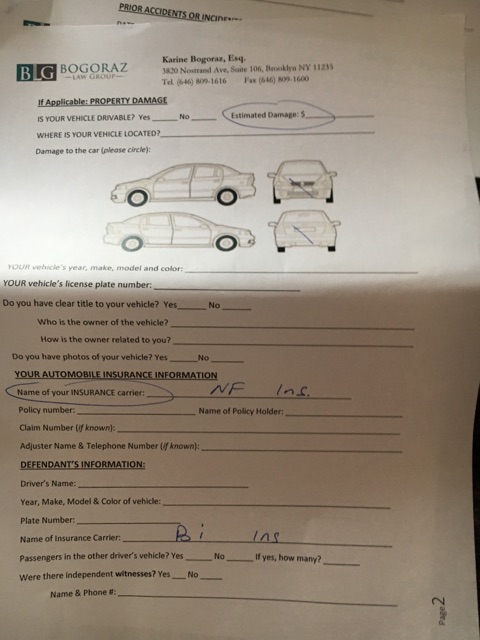 PRIOR ACCIDENTS OR
BLG BOGORAZ
LAW GROUP
Karine Bogoraz, Esq.
3820 Nostrand Ave, Suite 106, Brooklyn NY 11235
Tel. (646) 809-1616 Fax (646) 809-1600
If Applicable: PROPERTY DAMAGE
IS YOUR VEHICLE DRIVABLE? Yes____ No____ Estimated Damage: $____
WHERE IS YOUR VEHICLE LOCATED?____
Damage to the car (please circle):
YOUR vehicle's year, make, model and color:____
YOUR vehicle's license plate number:____
Do you have clear title to your vehicle? Yes____ No____
Who is the owner of the vehicle?____
How is the owner related to you?____
Do you have photos of your vehicle? Yes____ No____
YOUR AUTOMOBILE INSURANCE INFORMATION
Name of your INSURANCE carrier: NF Ins.
Policy number:____ Name of Policy Holder:____
Claim Number (if known):____
Adjuster Name & Telephone Number (if known):____
DEFENDANT'S INFORMATION:
Driver's Name:____
Year, Make, Model & Color of vehicle:____
Plate Number:____
Name of Insurance Carrier: Bi Ins
Passengers in the other driver's vehicle? Yes____ No____ If yes, how many?____
Were there independent witnesses? Yes____ No____
Name & Phone #:____
Page 2